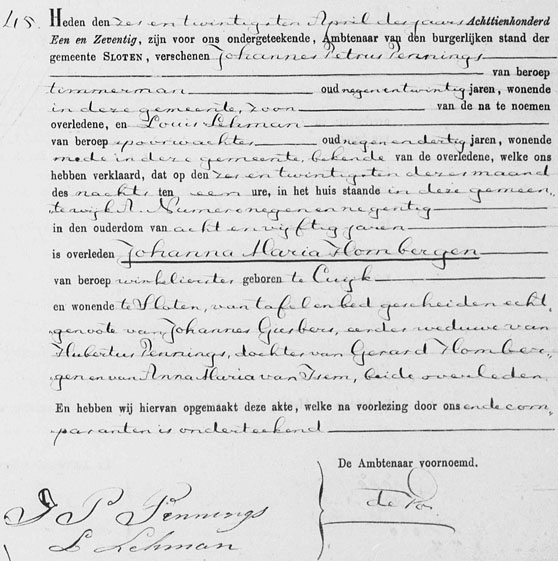 48. Heden den zes en twintigsten April des jaars Achttienhonderd
Een en Zeventig, zijn voor ons ondergeteekende, Ambtenaar van den burgerlijken stand der
gemeente SLOTEN, verschenen Johannes Petrus Pennings
van beroep
timmerman oud negenentwintig jaren, wonende
in deze gemeente, zoon van de na te noemen
overledene, en Louis Lehman
van beroep spoorwachter oud negenendertig jaren, wonende
mede in deze gemeente, bekende van de overledene, welke ons
hebben verklaard, dat op den zes en twintigsten dezer maand
des nachts ten een ure, in het huis staande in deze gemeen„
te wijk A. Numero negen en negentig
in den ouderdom van acht en vijftig jaren
is overleden Johanna Maria Hombergen
van beroep winkelierster geboren te Cuyk
en wonende te Sloten, van tafel en bed gescheiden echt„
genoote van Johannes Giesbers, eerder weduwe van
Hubertus Pennings, dochter van Gerard Homber„
gen en van Anna Maria van Isem, beide overleden
En hebben wij hiervan opgemaakt deze akte, welke na voorlezing door ons en de com„
paranten is onderteekend
De Ambtenaar voornoemd.
J P Pennings
L Lehman